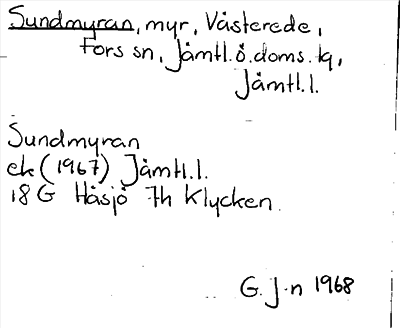 Sundmyran, myr, Västerede,
Fors sn, Jämtl.ö.doms.tg,
Jämtl.l.
Sundmyran
ek (1967) Jämtl.l.
18 G Håsjö 7h Klycken.
G. J-n 1968